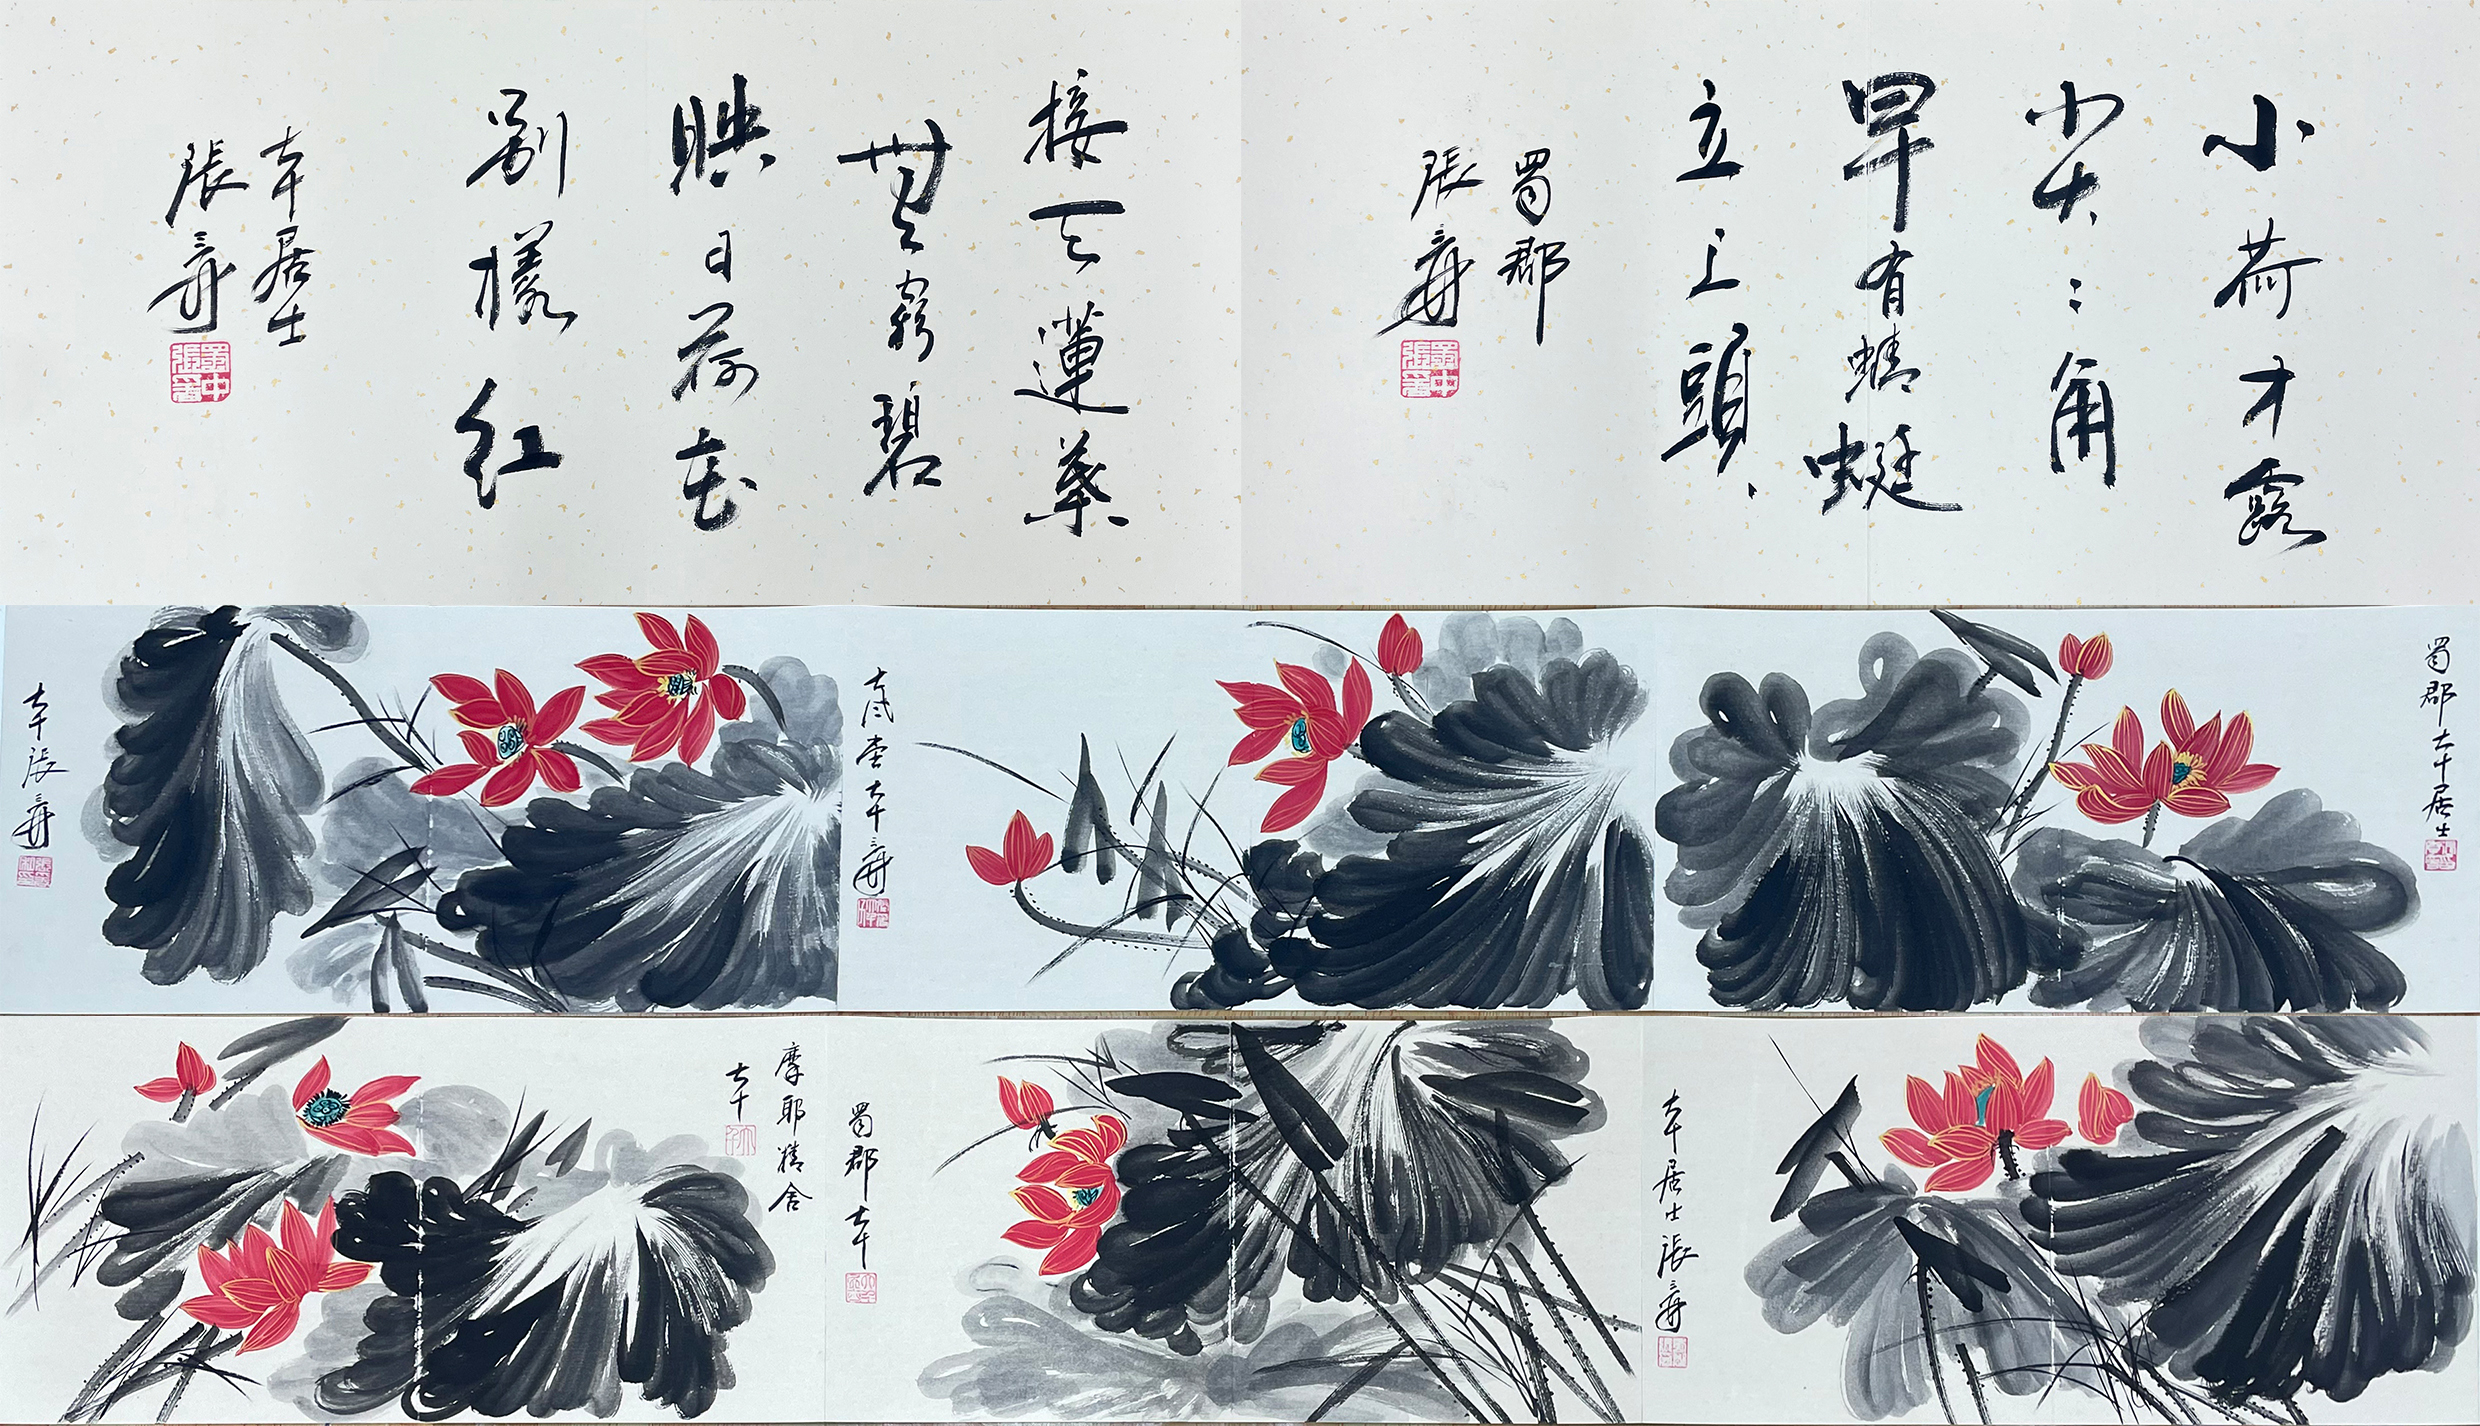 小荷才露
尖〻角
早有蜻蜓
立上頭
蜀郡
張爰
蜀中張爰
接天蓮葉
無窮碧
映日荷花
别樣紅
大千居士
張爰
蜀中張爰
蜀郡大千居士
大風堂大千爰
大千張爰
大千居士張爰
蜀郡大千
摩耶精舍
大千